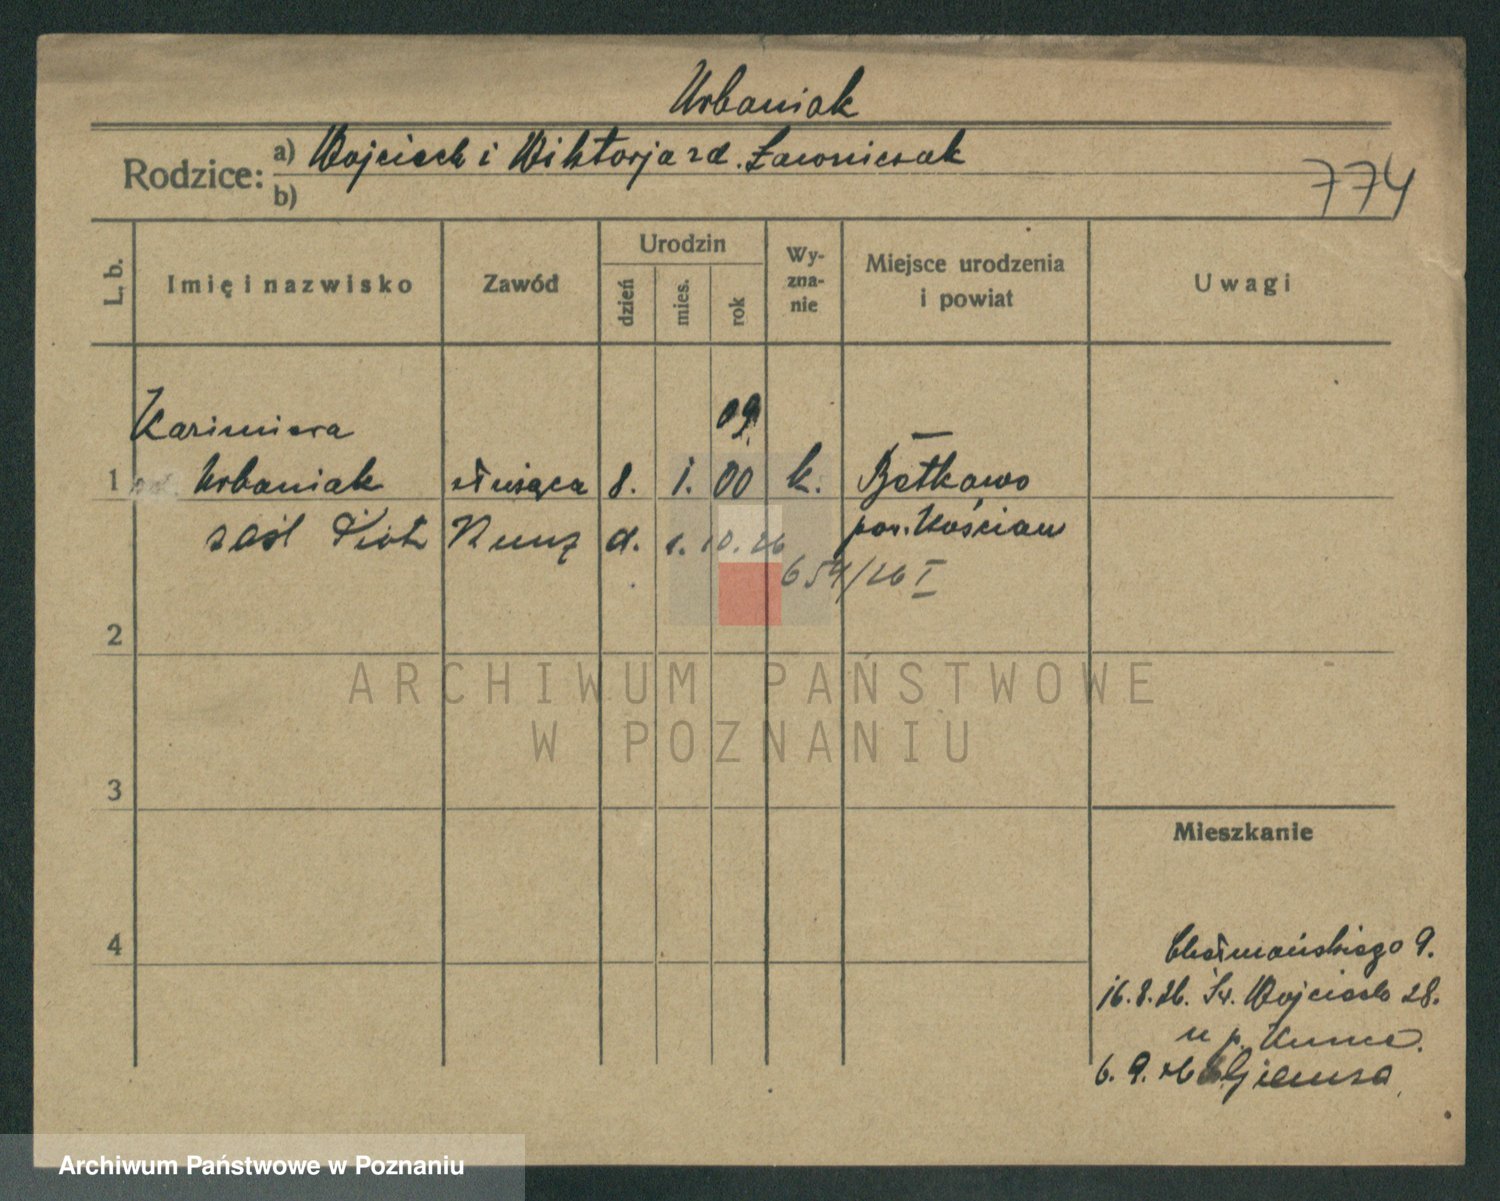 Urbaniak
Rodzice: a) Wojciech i Wiktorja zd. Ławniczak
b)
774
L. b.
Imię i nazwisko
Zawód
Urodzin
dzień
mies.
rok
Wy-
zna-
nie
Miejsce urodzenia
i powiat
Uwagi
Kazimiera
09.
1 Urbaniak służąca 8. 1. 00 k. Bełkowo
zaśl Piotr Kunz d. 1. 10. 26 pow. Kościan
654/26 I
2
3
4
Mieszkanie
Chełmońskiego 9.
16.8.26. Św. Wojciech 28.
u p. Kunce.
6. 9. 26
ARCHIWUM PAŃSTWOWE
W POZNANIU
Archiwum Państwowe w Poznaniu